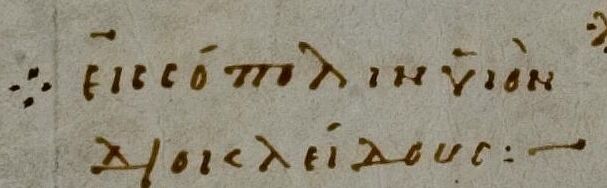 ⁘ εἰς σόπολιν ϋιὸν
Διοκλείδους:—